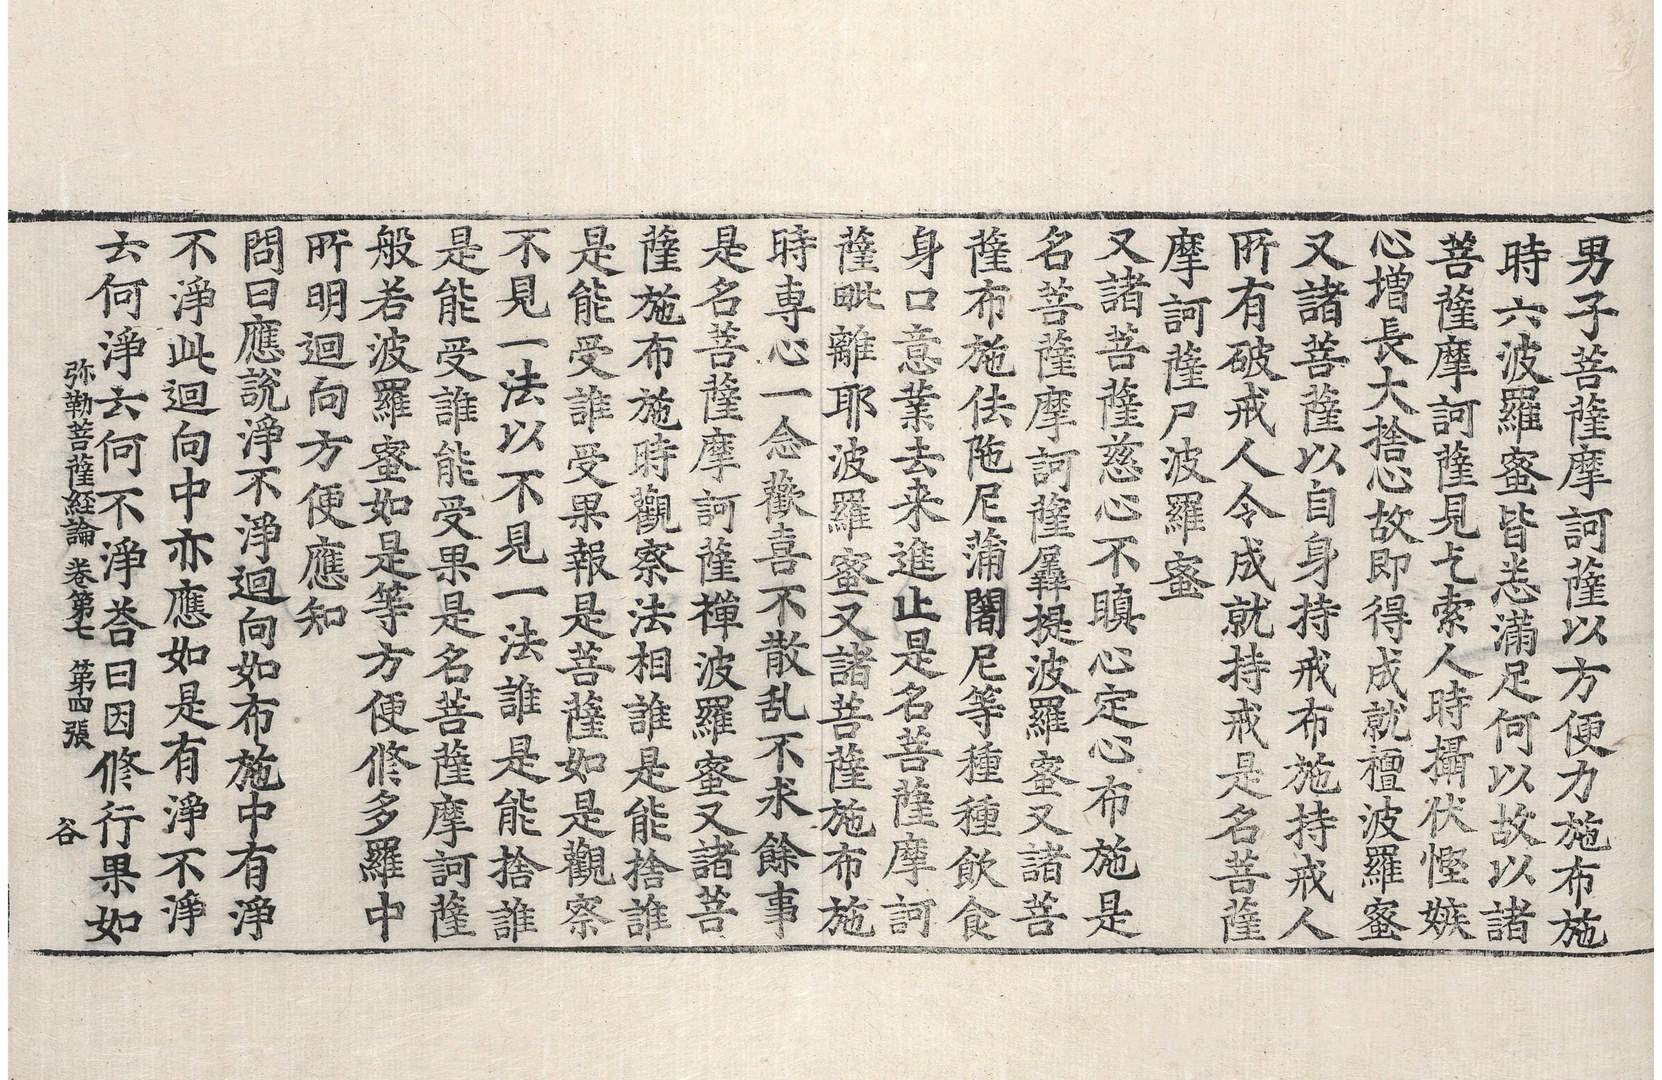 男子菩薩摩訶薩以方便力施布施
時六波羅蜜皆悉滿足何以故以諸
菩薩摩訶薩見乞索人時攝伏慳嫉
心增長大捨心故即得成就檀波羅蜜
又諸菩薩以自身持戒布施持戒人
所有破戒人令成就持戒是名菩薩
摩訶薩尸波羅蜜
又諸菩薩慈心不瞋心定心布施是
名菩薩摩訶薩羼提波羅蜜又諸菩
薩布施佉陁尼蒲闍尼等種種飲食
身口意業去来進止是名菩薩摩訶
薩毗離耶波羅蜜又諸菩薩施布施
時専心一念歡喜不散乱不求餘事
是名菩薩摩訶薩禪波羅蜜又諸菩
薩施布施時觀察法相誰是能捨誰
是能受誰受果報是菩薩如是觀察
不見一法以不見一法誰是能捨誰
是能受誰能受果是名菩薩摩訶薩
般若波羅蜜如是等方便修多羅中
所明迴向方便應知
問曰應說淨不淨迴向如布施中有淨
不淨此迴向中亦應如是有淨不淨
云何淨云何不淨荅曰因修行果如
弥勒菩薩経論 卷第七 第四張 谷